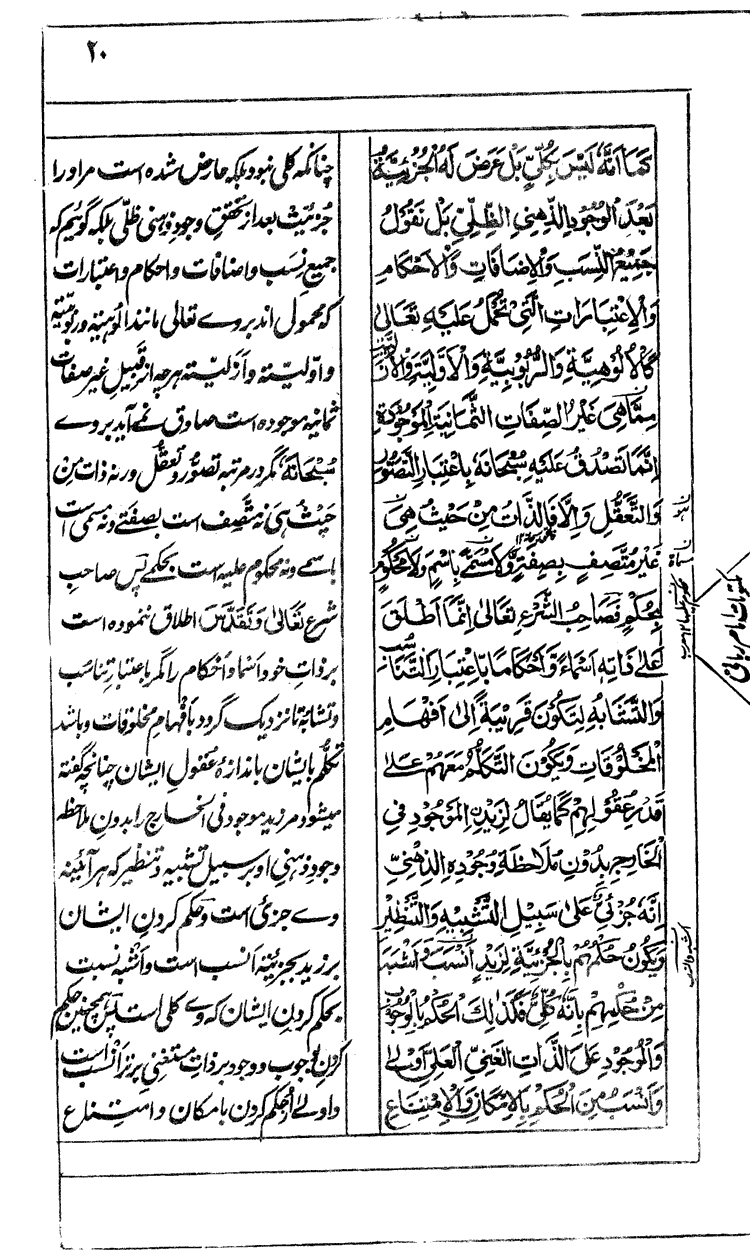 ۲۰
كَمَا اَنَّهٗ لَيْسَ بِكُلِّيٍّ بَلْ عَرَضَ لَهُ الْجُزْئِيَّةُ
بَعْدَ الْوُجُوْدِ الذِّهْنِيِ الظِّلِّيِّ بَلْ نَقُوْلُ
جَمِيْعُ النِّسَبِ وَالْاِضَافَاتِ وَالْاَحْكَامِ
وَالْاِعْتِبَارَاتِ الَّتِيْ تُحْمَلُ عَلَيْهِ تَعَالٰى
كَالْاُلُوْهِيَّةِ وَالرُّبُوْبِيَّةِ وَالْاَوَّلِيَّةِ وَالْاَزَلِيَّةِ
مِمَّا هِيَ غَيْرُ الصِّفَاتِ الثَّمَانِيَةِ الْمَوْجُوْدَةِ
اِنَّمَا تَصْدُقُ عَلَيْهِ سُبْحَانَهٗ بِاعْتِبَارِ التَّصَوُّرِ
وَالتَّعَقُّلِ وَاِلَّا فَالذَّاتُ مِنْ حَيْثُ هِيَ
غَيْرُ مُتَّصِفٍ بِصِفَةٍ وَّلَا مُسَمًّى بِاسْمٍ وَلَا مَحْكُوْمٍ
بِحُكْمٍ فَصَاحِبُ الشَّرْعِ تَعَالٰى اِنَّمَا اَطْلَقَ
عَلٰى ذَاتِهٖ اَسْمَاءً وَّاَحْكَامًا بِاِعْتِبَارِ التَّنَاسُبِ
وَالتَّشَابُهِ لِتَكُوْنَ قَرِيْبَةً اِلٰى اَفْهَامِ
الْمَخْلُوْقَاتِ وَيَكُوْنَ التَّكَلُّمُ مَعَهُمْ عَلٰى
قَدْرِ عُقُوْلِهِمْ كَمَا يُقَالُ لِزَيْدِ الْمَوْجُوْدِ فِي
الْخَارِجِ بِدُوْنِ مُلَاحَظَةِ وُجُوْدِهِ الذِّهْنِيِّ
اِنَّهٗ جُزْئِيٌّ عَلٰى سَبِيْلِ التَّشْبِيْهِ وَالتَّنْظِيْرِ
وَيَكُوْنُ حُكْمُهُمْ بِالْجُزْئِيَّةِ لِزَيْدٍ اَنْسَبَ وَاَشْبَهَ
مِنْ حُكْمِهِمْ بِاَنَّهٗ كُلِّيٌّ فَكَذٰلِكَ الْحُكْمُ بِالْوُجُوْبِ
وَالْوُجُوْدِ عَلَى الذَّاتِ الْغَنِيِّ الْعَلِيِّ اَوْلٰى
وَاَنْسَبُ مِنَ الْحُكْمِ بِالْاِمْكَانِ وَالْاِمْتِنَاعِ
چنانکہ کلی نبود بلکہ عارض شده است مراورا
جُزئیّت بعد از تحقق وجودِ ذہنی ظلّی بلکہ گوئیم کہ
جمیع نِسَب و اضافات و احکام و اعتبارات
کہ محمول اند بروے تعالی مانند اُلُوہیّۃ و رُبوبیّۃ
و اوّلیّۃ و اَزَلیّۃ ہرچہ از قبیلِ غیر صفات
ثمانیہ موجوده است صادق نمے آید بروے
سُبْحَانَهٗ مگر در مرتبہ تصوّر و تعقّل ورنہ ذات مِن
حَیْثُ ہِیَ نہ مُتَّصِف است بصفتے و نہ مسمی است
باسمے و نہ محکوم علیہ است بحکمے پس صاحبِ
شرع تَعَالٰی وَتَقَدَّسَ اطلاق ننموده است
بر ذاتِ خود اَسْما و اَحْکام را مگر باعتبارِ تناسُب
و تَشابُہ تا نزدیک گردد بَافہامِ مخلوقات و باشد
تکلُّم بایشان باندازۂ عُقولِ ایشان چنانچہ گفتہ
میشود مر زید موجود فی الخارج را بدونِ ملاحظہ
وجودِ ذہنی او بر سبیل تَشبیہ و تنظیر کہ ہر آئینہ
وے جزئی است و حکم کردنِ ایشان
بر زید بجزئیّۃ اَنسب است و اَشْبہ نسبت
بحکم کردنِ ایشان کہ وے کلی است پس ہمچنین حکم
کردن بوجوب و وجود بر ذاتِ مستغنی برتر اَنسب است
و اولے از حکم کردن بامکان و امتناع
مکتوبات امام ربانی